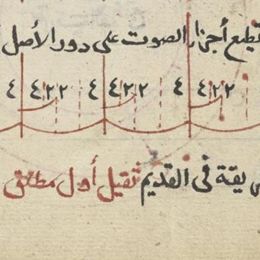 قطع أجزاء الصوت على دور الأصل
٤ ٢ ٢ ٤ ٤ ٢ ٢ ٤ ٤ ٢ ٢ ٤
يقة في القديم ثقيل أول مطلق